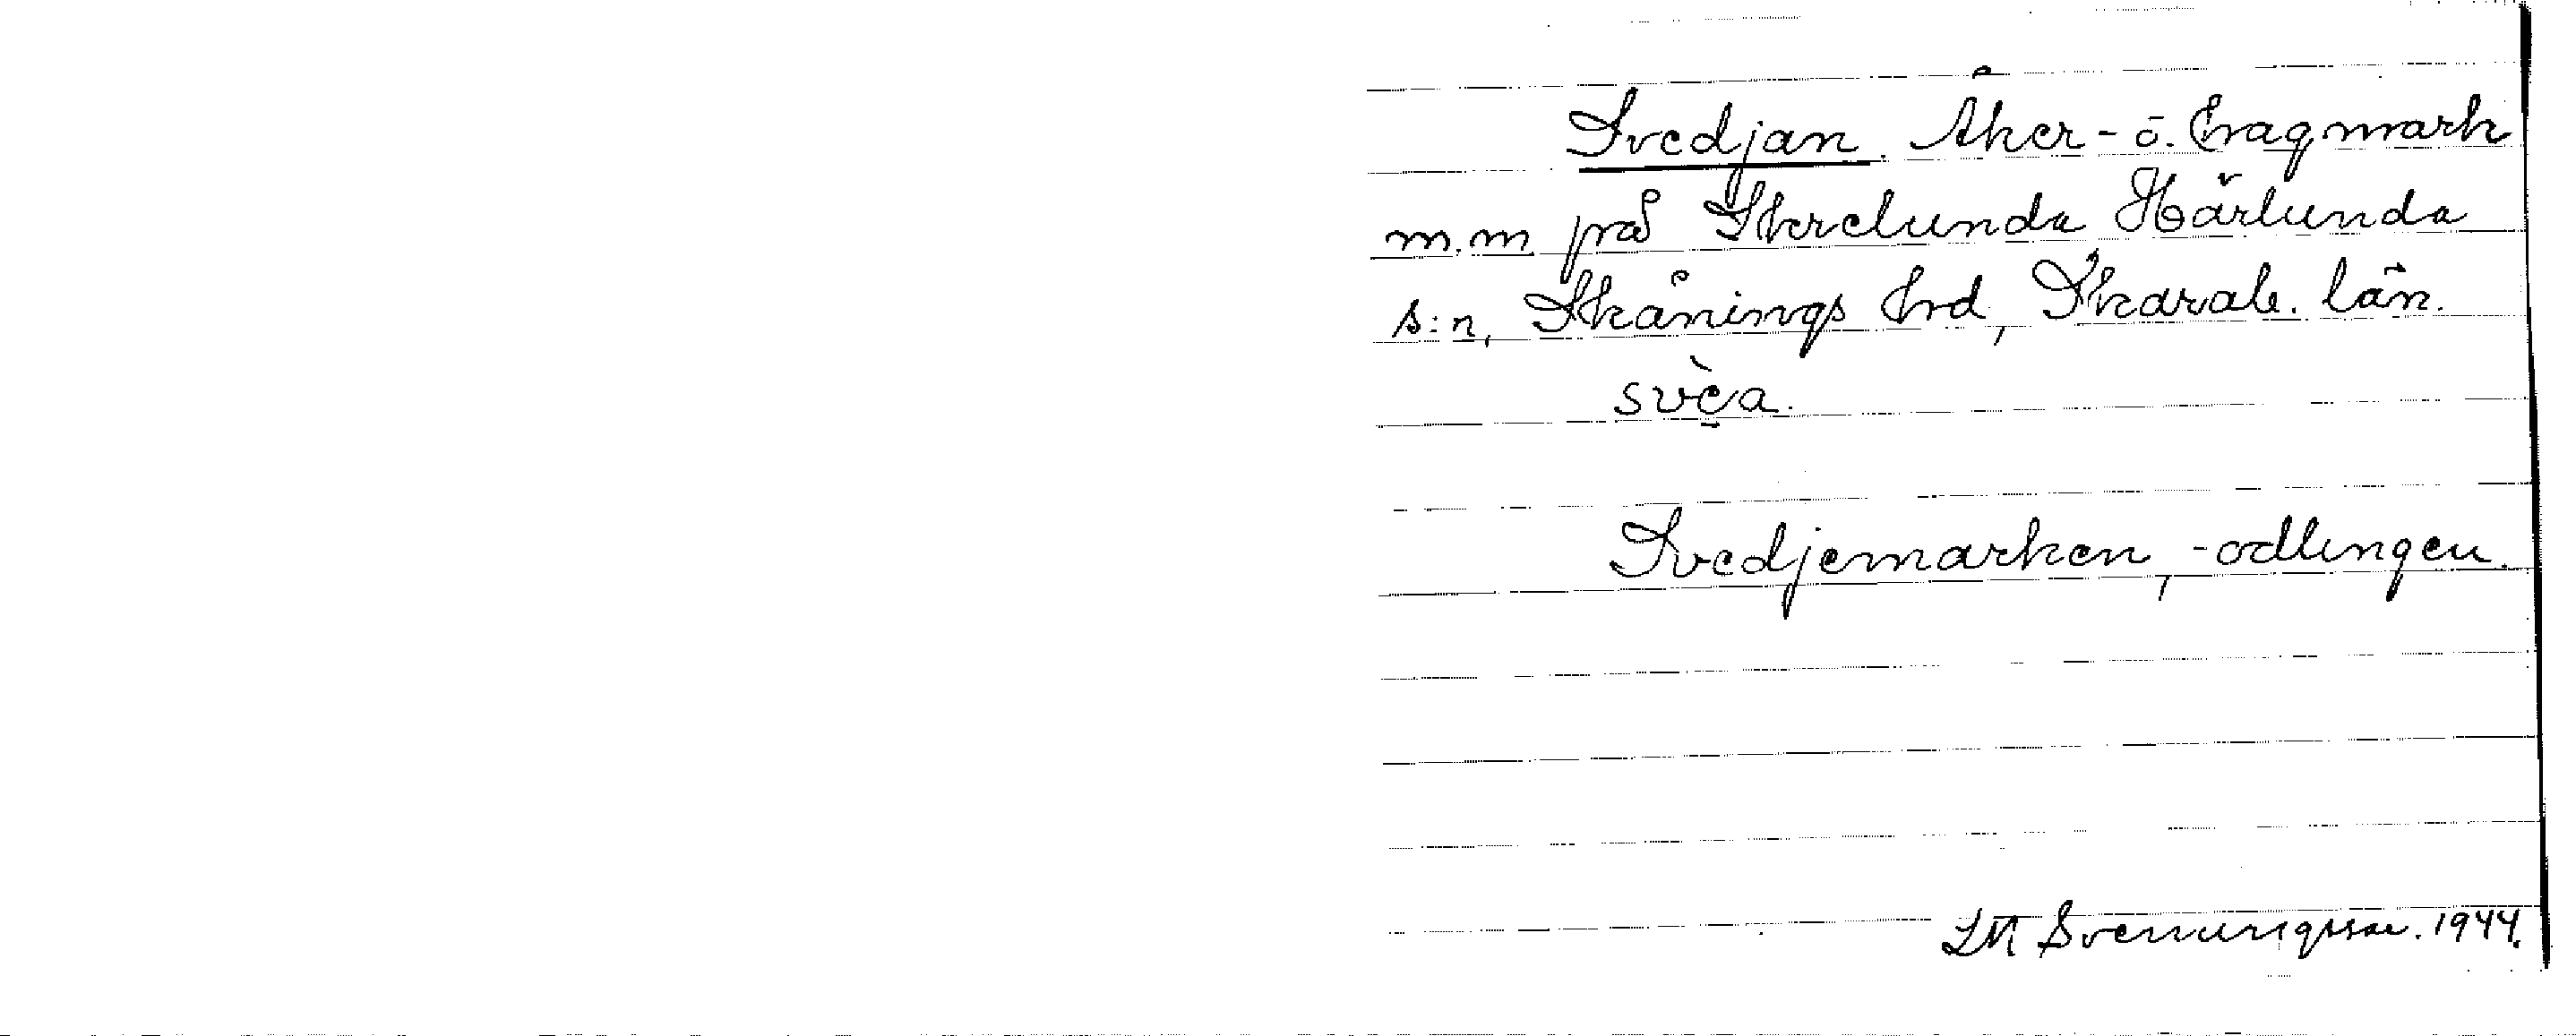 Svedjan. Åker- o. hagmark
m.m. på Skrelunda, Härlunda
s:n, Skånings hrd, Skarab. län.
svèa.
Svedjemarken, -odlingen.
LM Svenungsson. 1944.